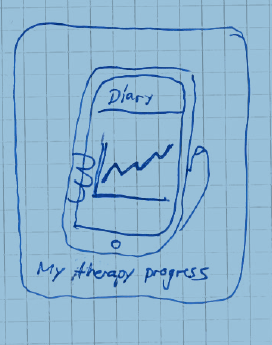 Diary
My therapy progress